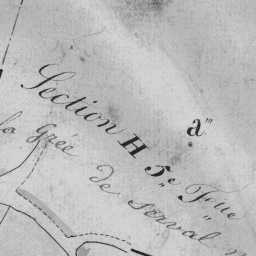 Section H 5.e F.lle
a'''
la Grée de Serval